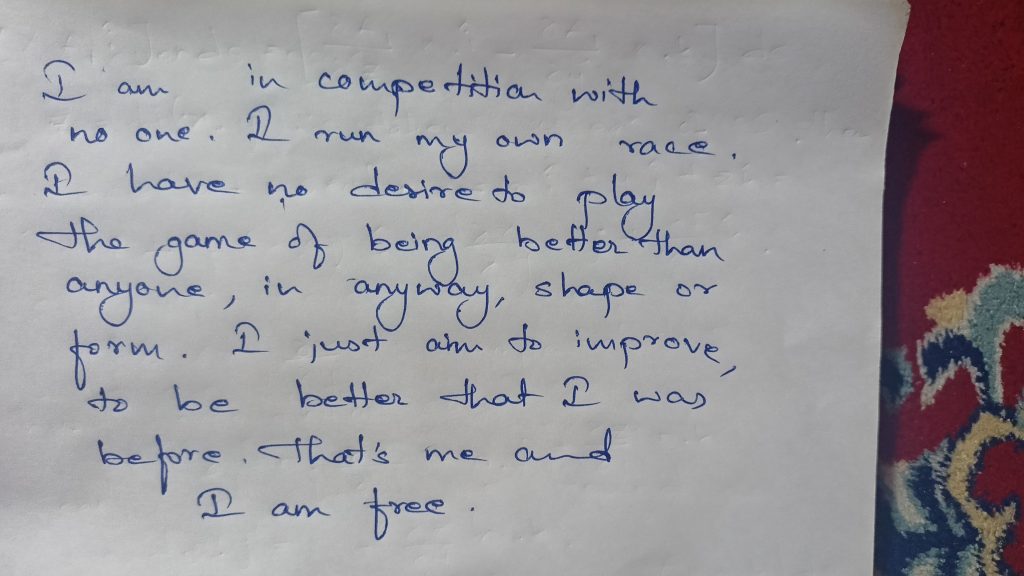 I am in competition with
no one. I run my own race.
I have no desire to play
the game of being better than
anyone, in anyway, shape or
form. I just aim to improve,
to be better that I was
before. That's me and
I am free.